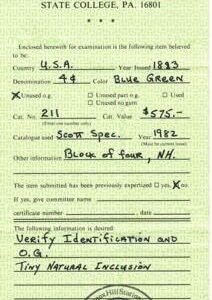 STATE COLLEGE, PA. 16801
* * *
Enclosed herewith for examination is the following item believed
to be:
Country U.S.A. Year Issued 1883
Denomination 4¢ Color BLUE GREEN
☒ Unused o.g. ☐ Unused part o.g. ☐ Used
☐ Unused no gum
Cat. No. 211 Cat. Value $575.-
Catalogue used SCOTT SPEC. Year 1982
(Must be current issue)
Other information BLOCK OF FOUR, NH.
The item submitted has been previously expertized ☐ yes, ☒ no.
If yes, give committee name
certificate number date
The following information is desired:
VERIFY IDENTIFICATION AND
O.G.
TINY NATURAL INCLUSION
Hill Station